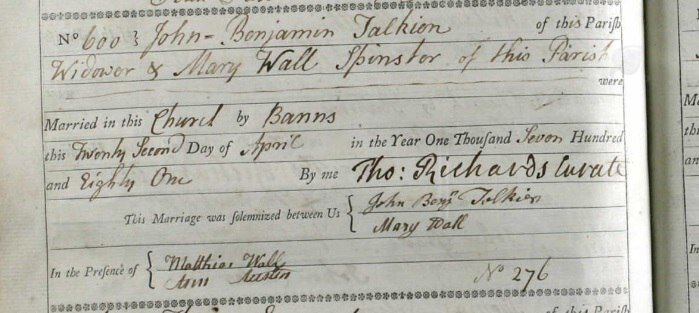 No 600 } John-Benjamin Talkien of this Parish
Widower & Mary Wall Spinster of this Parish
were
Married in this Church by Banns
this Twenty Second Day of April in the Year One Thousand Seven Hundred
and Eighty One By me Tho: Richards Curate
This Marriage was solemnized between Us { John Benjn Tolkien
Mary Wall
In the Presence of { Matthias Wall
Ann Austin
No 276
of this Parish